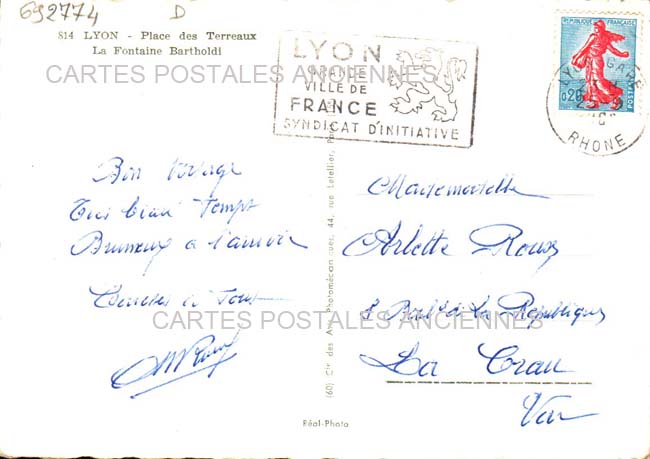 692774 D
814 LYON - Place des Terreaux
La Fontaine Bartholdi
CARTES POSTALES ANCIENNES
LYON
GRANDE
VILLE DE
FRANCE
SYNDICAT D'INITIATIVE
REPUBLIQUE FRANÇAISE
0,20
POSTES
LYON GARE
RHONE
Bon Voyage
Très beau Temps
Brumeux à l'arrivée
à Tous
Mademoiselle
Arlette Roux
Boul^d de la République
La Crau
Var
CARTES POSTALES ANCIENNES
(60) Cie des Arts Photomécaniques, 44, rue Letellier, Paris
Réal-Photo